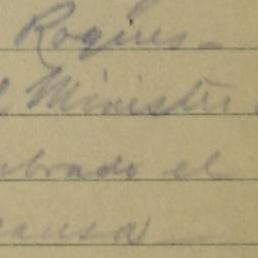 Roques-
l Ministro
nbrado el
causa